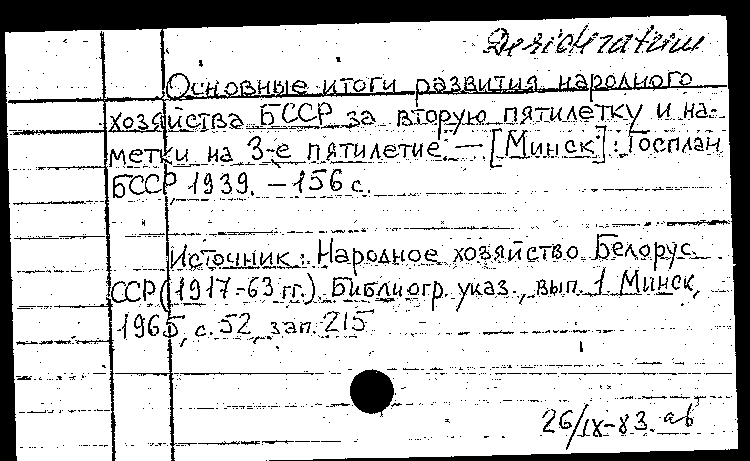 Desideratum
Основные итоги развития народного
хозяйства БССР за вторую пятилетку и на-
метки на 3-е пятилетие. — [Минск]: Госплан
БССР, 1939. — 156 с.
Источник: Народное хозяйство Белорус.
ССР (1917-63 гг.). Библиогр. указ., вып. 1. Минск,
1965, с. 52, зап. 215
26/IX-83. ав